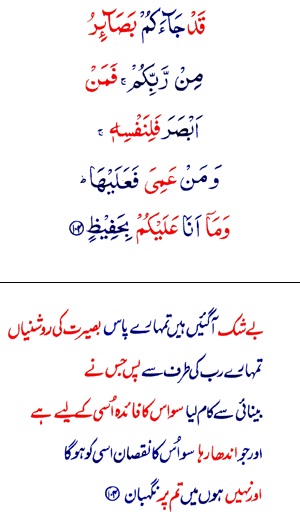 قَدْ جَآءَكُمْ بَصَآئِرُ
مِنْ رَّبِّكُمْ ۚ فَمَنْ
اَبْصَرَ فَلِنَفْسِهٖ ۚ
وَمَنْ عَمِىَ فَعَلَيْهَا ؕ
وَمَاۤ اَنَا عَلَيْكُمْ بِحَفِيْظٍ ﴿۱۰۴﴾
بے شک آگئیں ہیں تمہارے پاس بصیرت کی روشنیاں
تمہارے رب کی طرف سے پس جس نے
بینائی سے کام لیا سو اس کا فائدہ اُسی کے لیے ہے
اور جو اندھا رہا سو اُس کا نقصان اسی کو ہو گا
اور نہیں ہوں میں تم پر نگہبان ﴿۱۰۴﴾